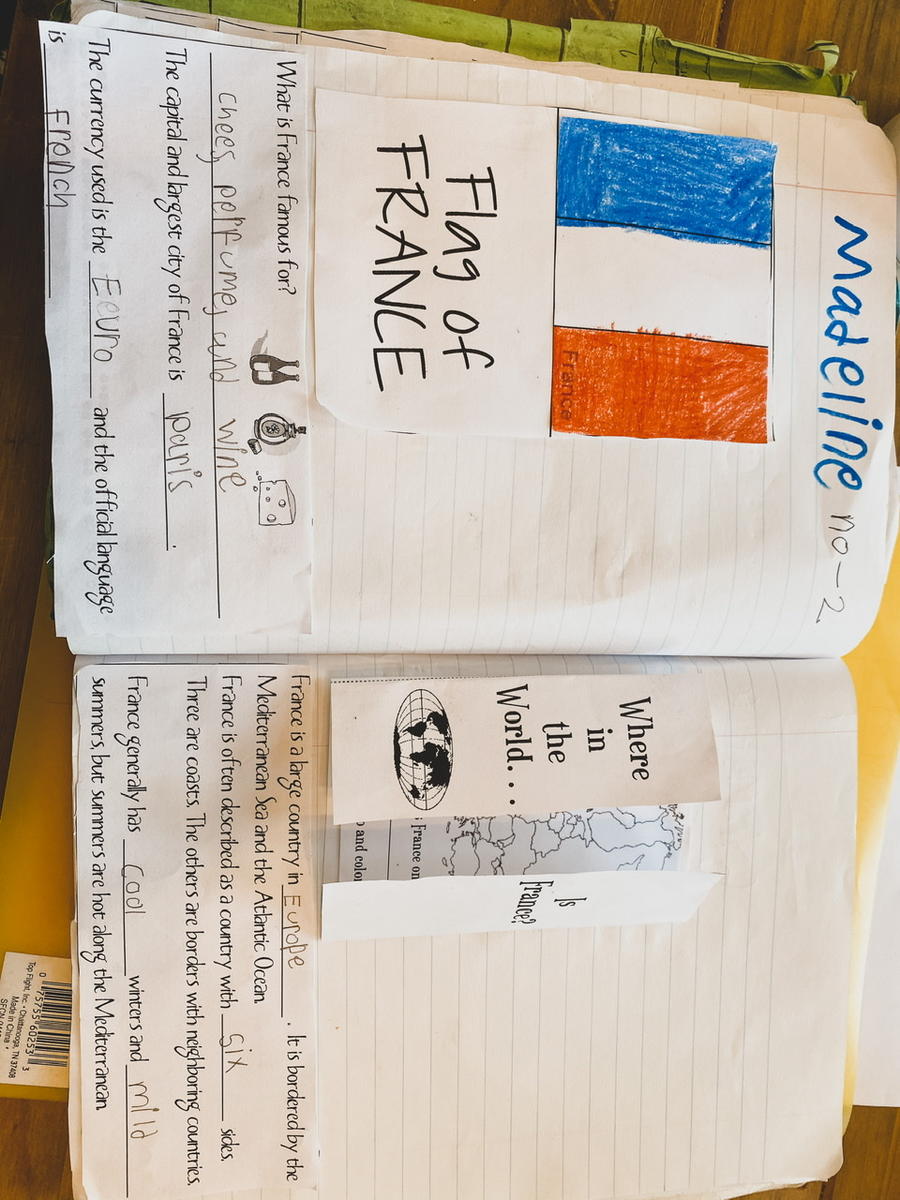 Madeline no-2
France
Flag of
FRANCE
What is France famous for?
chees, perfume, and wine
The capital and largest city of France is paris.
The currency used is the Eeuro and the official language
is French
Where
in
the
World...
Is
France?
France on
and color
France is a large country in Europe. It is bordered by the
Mediterranean Sea and the Atlantic Ocean
France is often described as a country with six sides.
Three are coasts. The others are borders with neighboring countries.
France generally has cool winters and mild
summers, but summers are hot along the Mediterranean
0 75755 60253 3
Top Flight, Inc. • Chattanooga, TN 37408
Made in China •